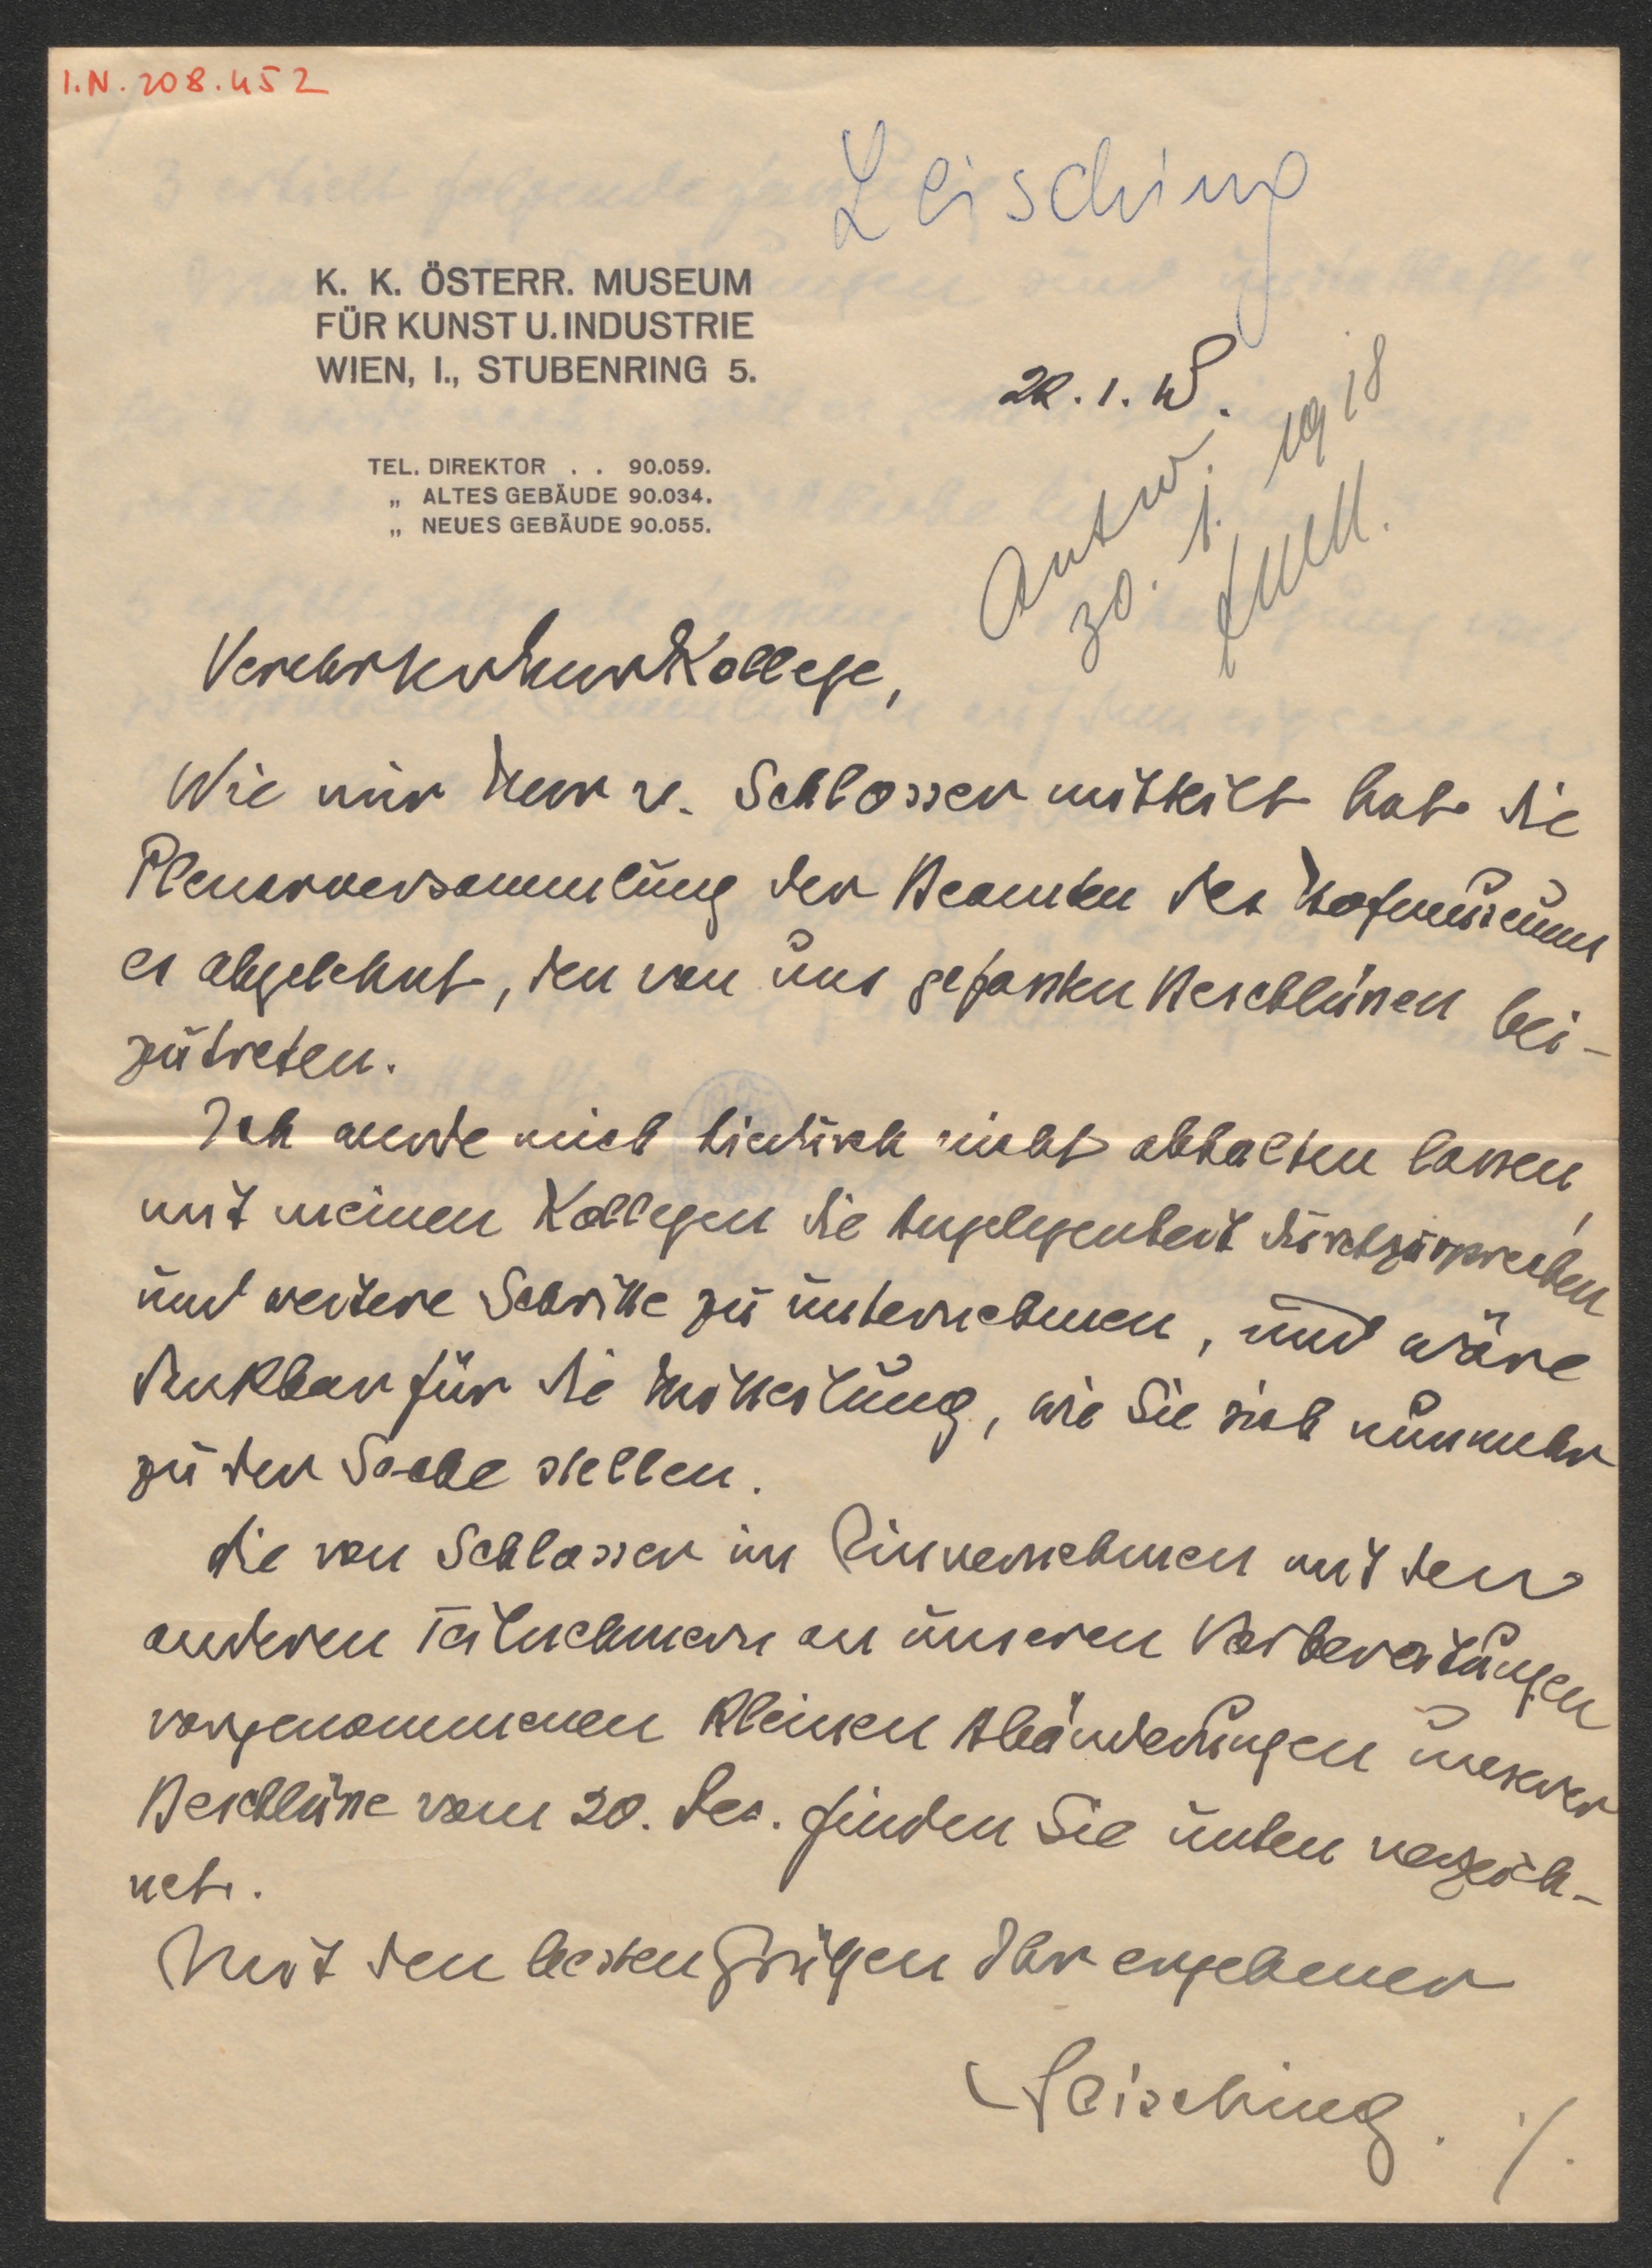 I.N. 208.452
Leisching
K. K. ÖSTERR. MUSEUM
FÜR KUNST U. INDUSTRIE
WIEN, I., STUBENRING 5.
TEL. DIREKTOR . . 90.059.
„ ALTES GEBÄUDE 90.034.
„ NEUES GEBÄUDE 90.055.
Antw.
30. 1. 1918
Verehrter Herr Kollege,
Wie mir Herr v. Schlosser mitteilt hat die
Plenarversammlung der Beamten des Hofmuseums
es abgelehnt, den von uns gefassten Beschlüssen bei-
zutreten.
Ich werde mich hiedurch nicht abhalten lassen,
mit meinen Kollegen die Angelegenheit durchzusprechen
und weitere Schritte zu unternehmen, und wäre
dankbar für die Mitteilung, wie Sie sich nunmehr
zu der Sache stellen.
Die von Schlosser im Einvernehmen mit den
anderen Teilnehmern an unseren Vorberatungen
vorgenommenen kleinen Abänderungen unserer
Beschlüsse vom 20. Dez. finden Sie unten verzeich-
net.
Mit den besten Grüßen Ihr ergebener
Leisching. ./.